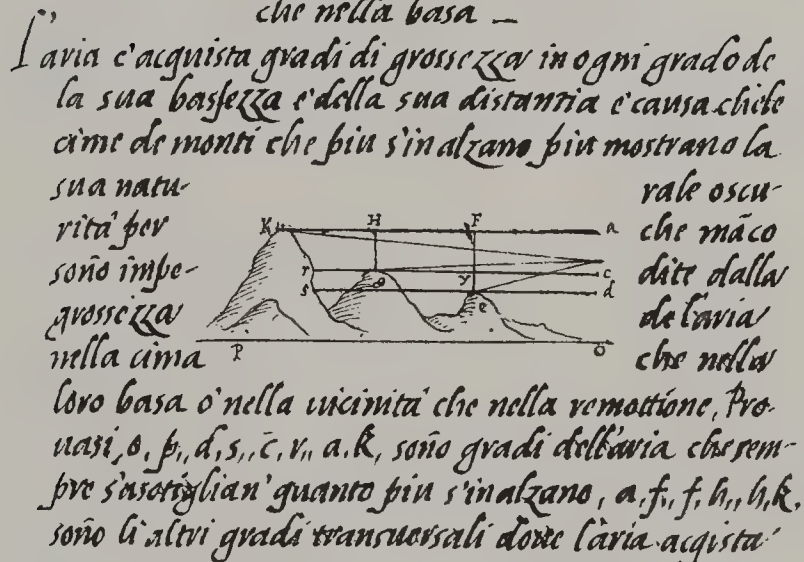 che nella basa
l'aria c'acquista gradi di grossezza in ogni grado de
la sua bassezza e della sua distantia e causa chele
cime de monti che piu s'inalzano piu mostrano la
sua natu- rale oscu-
rità per che māco
sono impe- dite dalla
grossezza de l'aria
nella cima che nella
K H F a
r y c
s e d
P O
loro basa o' nella uicinità che nella remottione, Pro-
uasi, o, p,, d, s,, c, r,, a. k, sono gradi dell'aria che sem-
pre s'asotiglian' quanto piu s'inalzano, a, f,, f, h,, h, k,
sono li altri gradi transuersali doue l'aria acqista